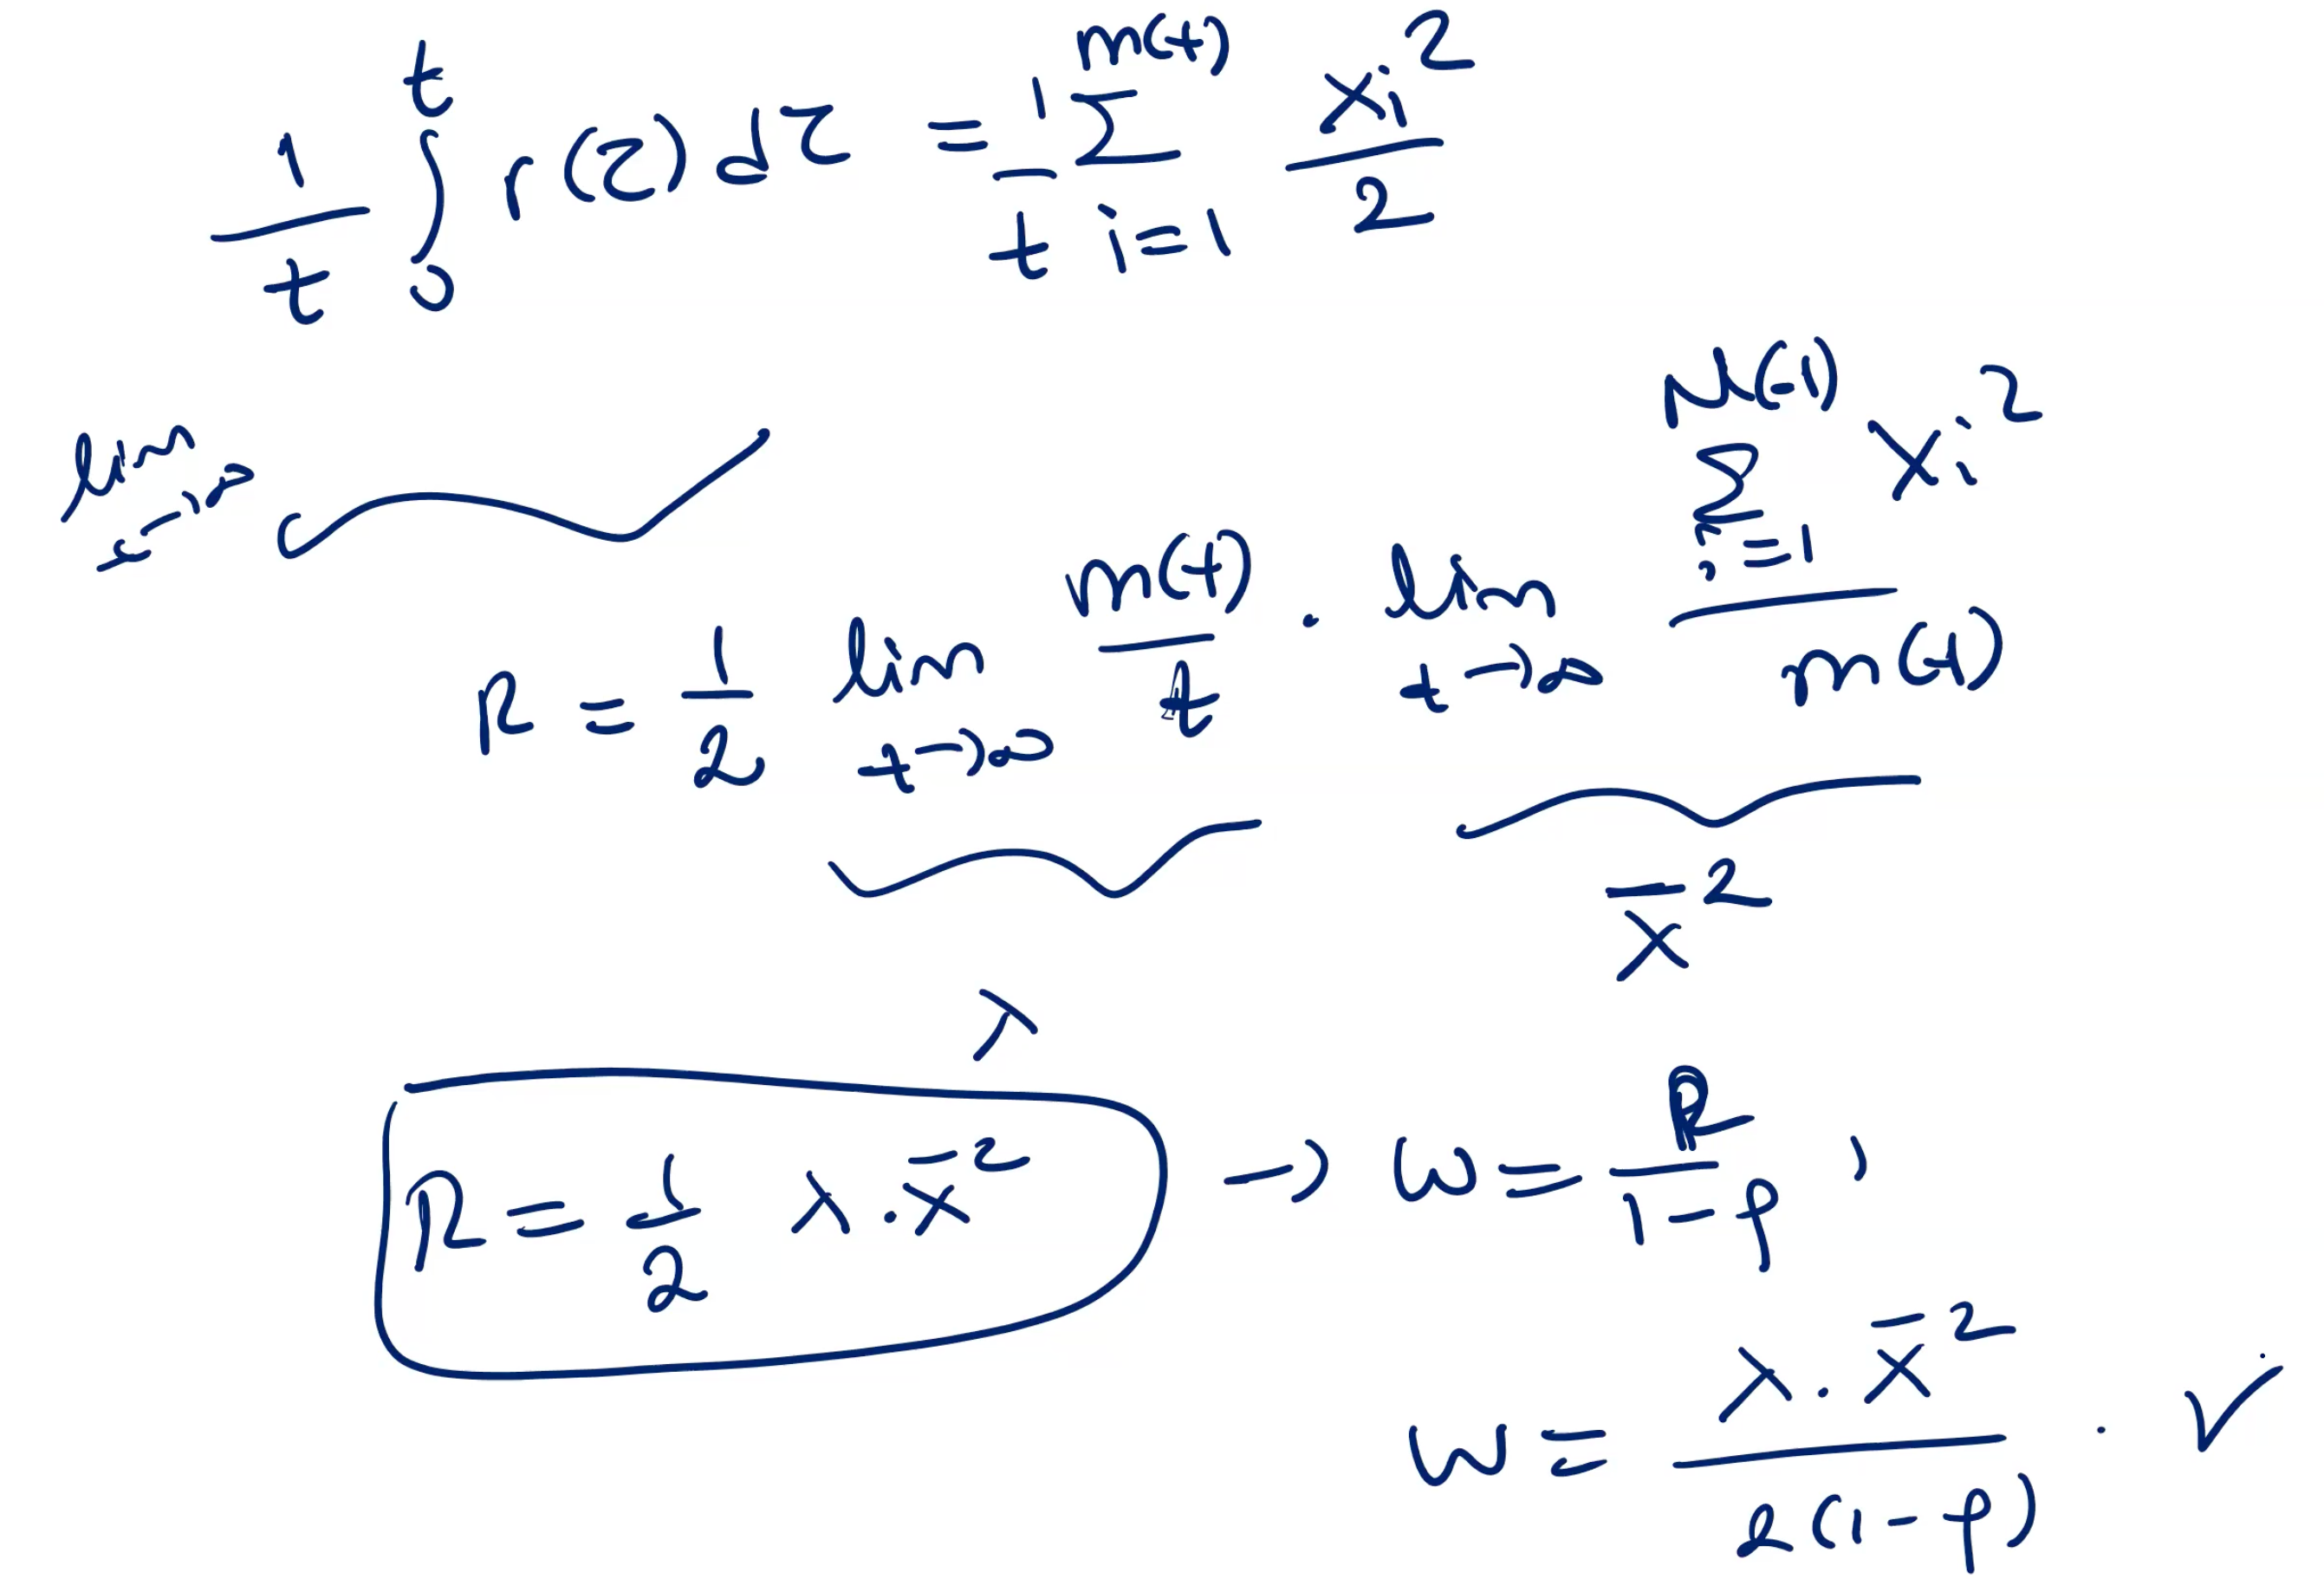 $\frac{1}{t} \int_0^t r(\tau) d\tau = \frac{1}{t} \sum_{i=1}^{m(t)} \frac{x_i^2}{2}$
$\lim_{t \to \infty}$
$R = \frac{1}{2} \lim_{t \to \infty} \frac{m(t)}{t} \cdot \lim_{t \to \infty} \frac{\sum_{i=1}^{N(t)} x_i^2}{m(t)}$
$\lambda$ $\overline{x}^2$
$R = \frac{1}{2} \lambda \cdot \overline{x}^2 \rightarrow W = \frac{R}{1-\rho},$
$W = \frac{\lambda \cdot \overline{x}^2}{2(1-\rho)} \cdot$ ✓